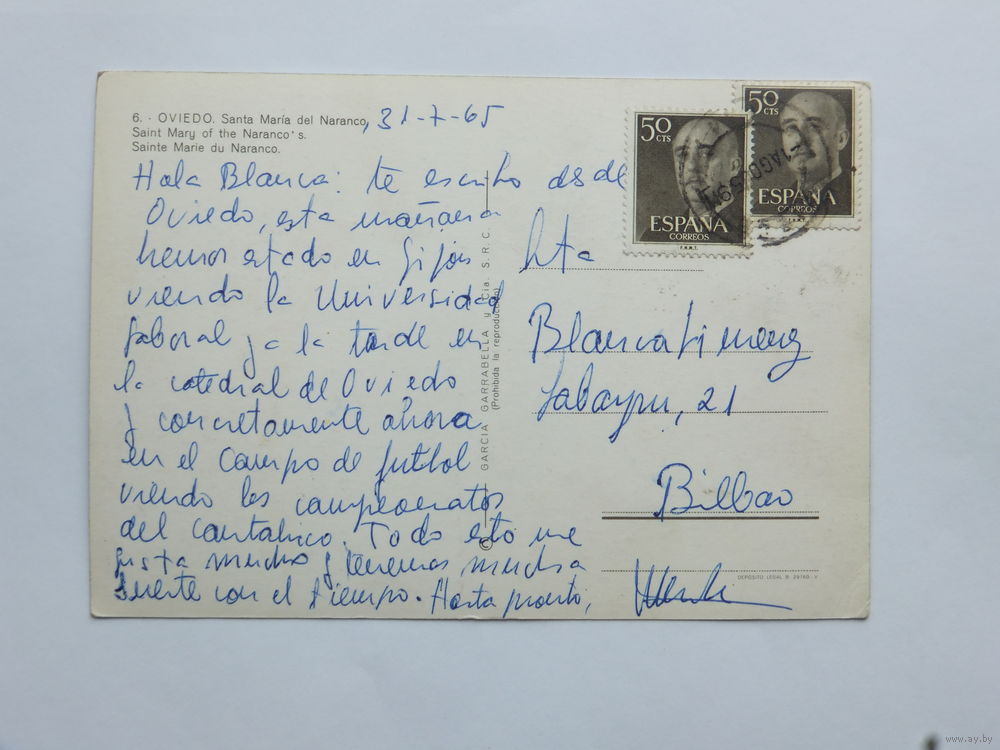 6. - OVIEDO. Santa María del Naranco, 31-7-65
Saint Mary of the Naranco's.
Sainte Marie du Naranco.
Hola Blanca: te escribo desde
Oviedo, esta mañana
hemos estado en Gijón
viendo la Universidad
laboral y a la tarde en
la catedral de Oviedo
y concretamente ahora
en el campo de futbol
viendo los campeonatos
del cantabrico. Todo esto me
gusta mucho y tenemos mucha
suerte con el tiempo. Hasta pronto,
50
CTS
ESPAÑA
CORREOS
F.N.M.T.
50
CTS
ESPAÑA
CORREOS
F.N.M.T.
Blanca
21
Bilbao
GARCIA GARRABELLA y Cia. S.R.C.
(Prohibida la reproducción)
©
DEPOSITO LEGAL B. 29760 - V
www.ay.by